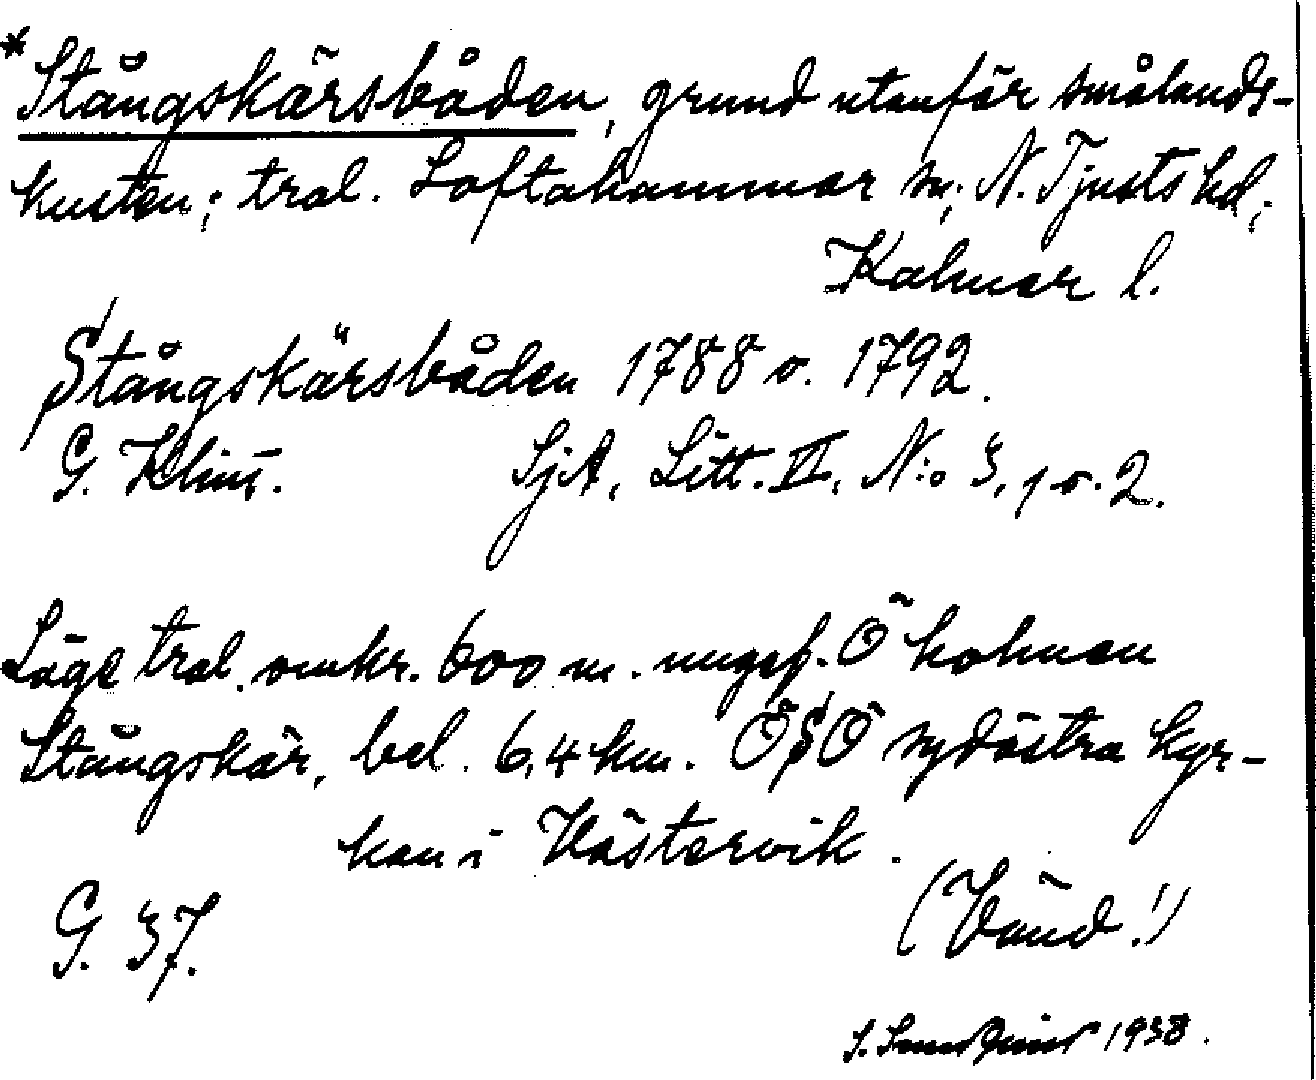 *Stångskärsbåden, grund utanför smålands-
kusten; trol. Loftahammar sn, N. Tjusts hd,
Kalmar l.
Stångskärsbåden 1788 o. 1792.
G. Klint. SjA, Litt. VI, N:o 3, 1 o. 2.
Läge trol. omkr. 600 m. ungef. Ö holmen
Stångskär, bel. 6,4 km. ÖSÖ sydöstra kyr-
kan i Västervik.
G. 37. (Vänd!)
1938.